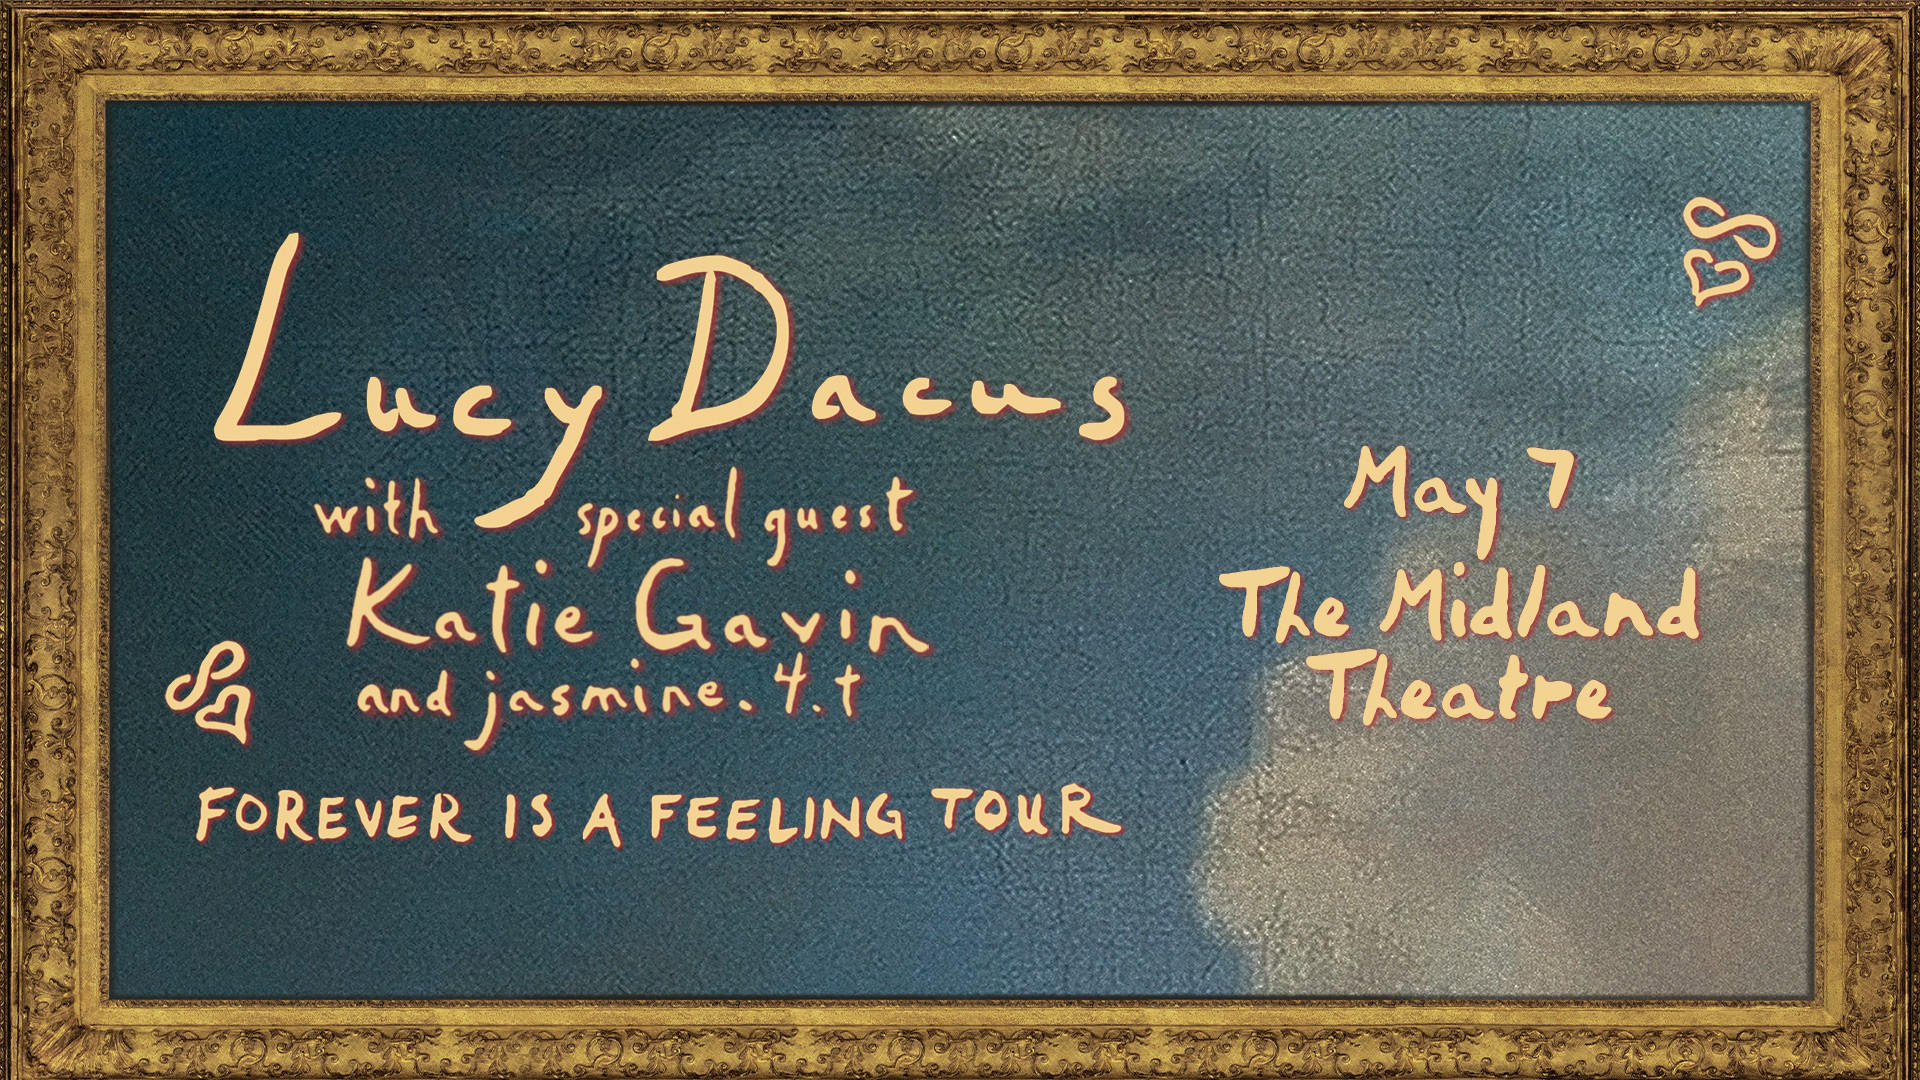 Lucy Dacus
with special guest
Katie Gavin
and jasmine.4.t
FOREVER IS A FEELING TOUR
May 7
The Midland
Theatre